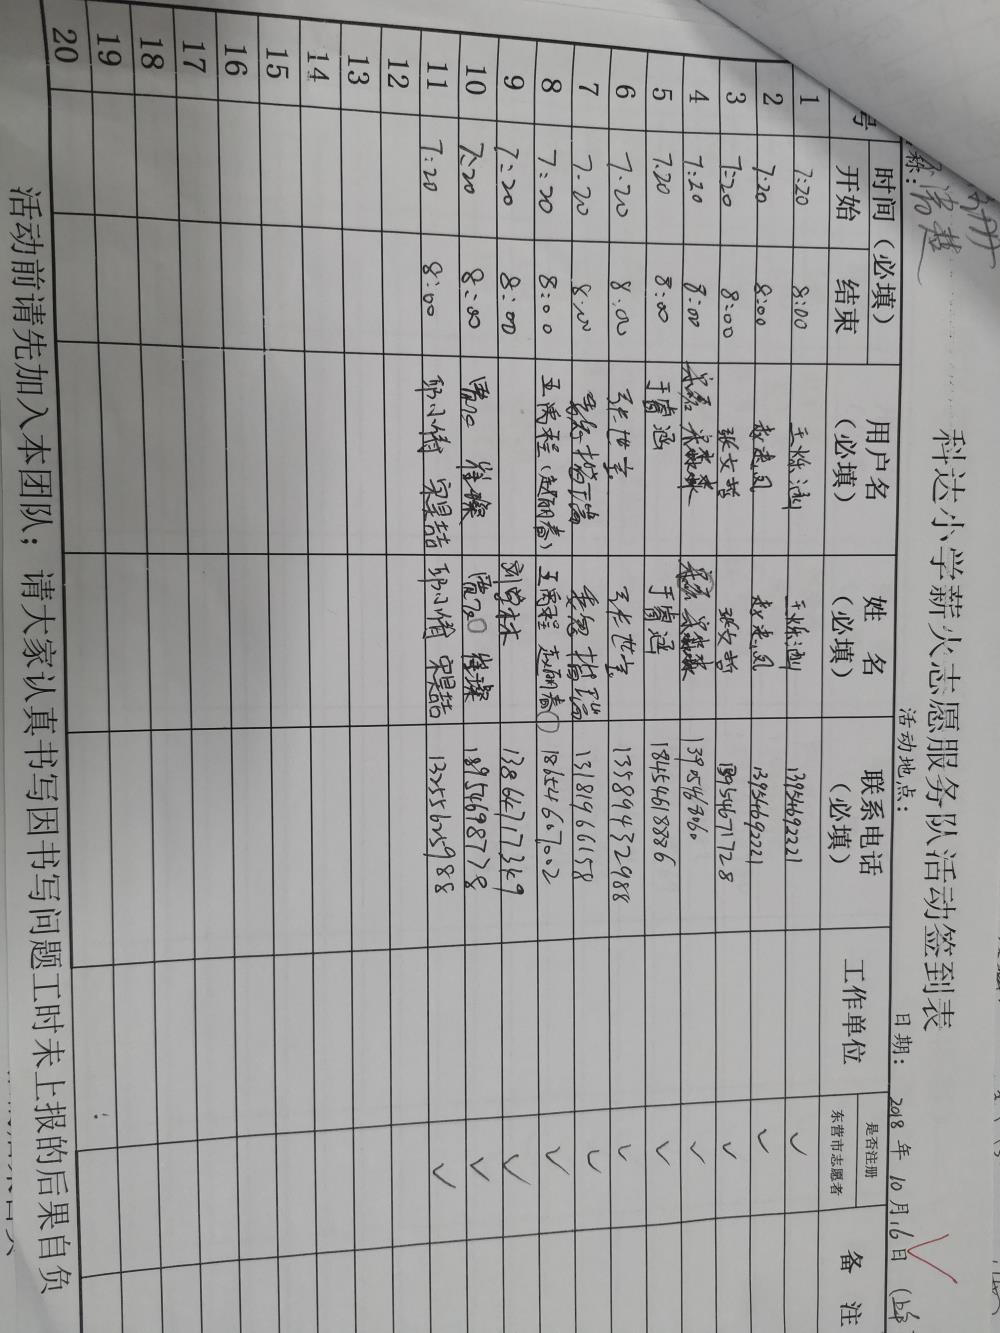 科达小学薪火志愿服务队活动签到表
称： 活动地点： 日期： 2018年10月16日
号 时间（必填） 用户名（必填） 姓 名（必填） 联系电话（必填） 工作单位 是否注册东营市志愿者 备 注
开始 结束
1 7:20 8:00 王烁涵 王烁涵 13954692221 ✓
2 7.20 8:00 赵志凤 赵志凤 13954692221 ✓
3 7:20 8:00 张文哲 张文哲 13954671728 ✓
4 7:20 8:00 13905468060 ✓
5 7.20 8:00 于睿涵 于睿涵 18454618886 ✓
6 7.20 8.00 13589432988 ✓
7 7.20 8.00 13181966158 ✓
8 7:20 8:00 王禹程（赵丽春） 王禹程 赵丽春 18654667002 ✓
9 7:20 8:00 13864717349 ✓
10 7:20 8:00 徐璨 徐璨 18954698778 ✓
11 7:20 8:00 邱小倩 宋昊喆 邱小倩 宋昊喆 13255625988 ✓
12
13
14
15
16
17
18
19
20
活动前请先加入本团队；请大家认真书写因书写问题工时未上报的后果自负